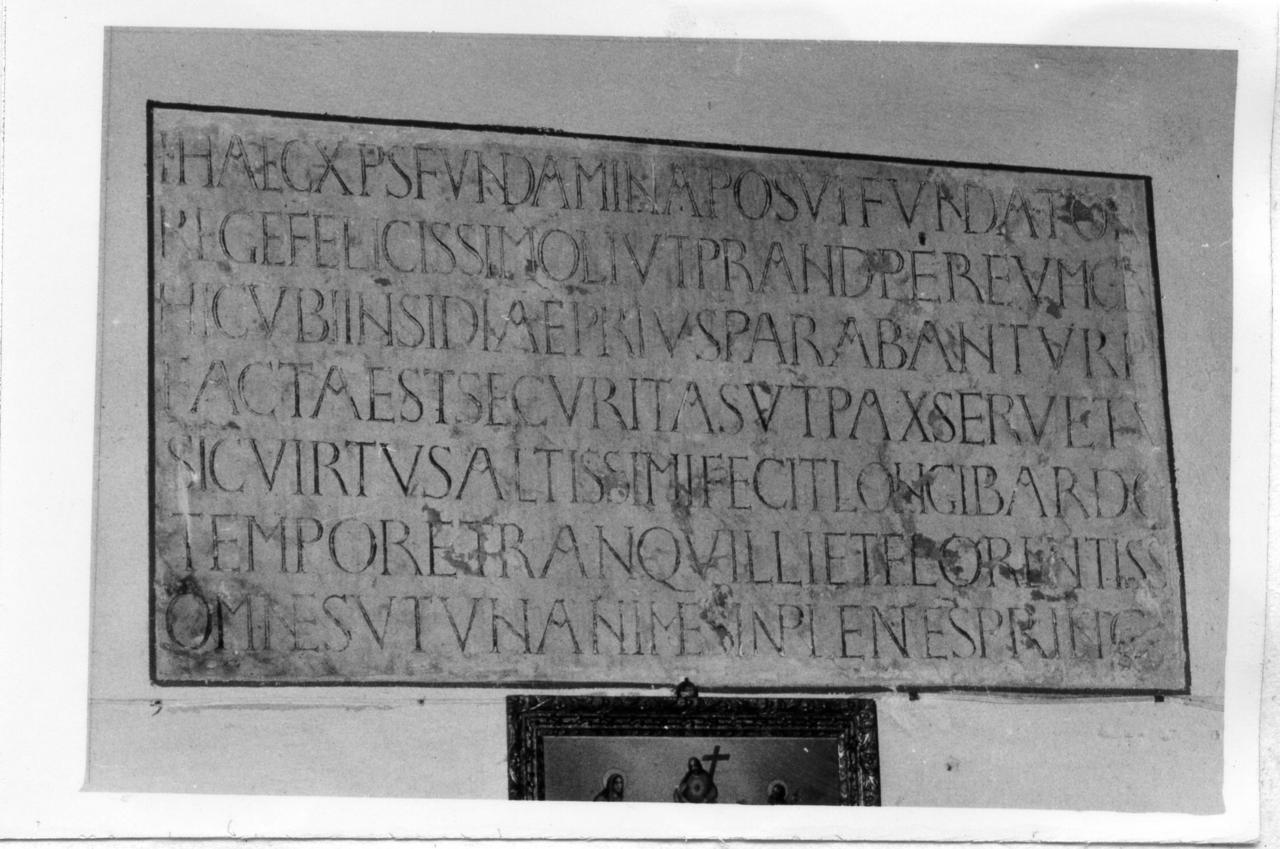 HAEC XPS FVNDAMINA POSVIT FVNDATO
REGE FELICISSIMO LIVTPRAND PER EVM CE
HIC VBI INSIDIAE PRIVS PARABANTVR P
FACTA EST SECVRITAS VT PAX SERVET
SIC VIRTVS ALTISSIMI FECIT LONGIBARDO
TEMPORE TRANQVILLI ET FLORENTISS
OMNES VT VNANIMES IN PLENES PRINC